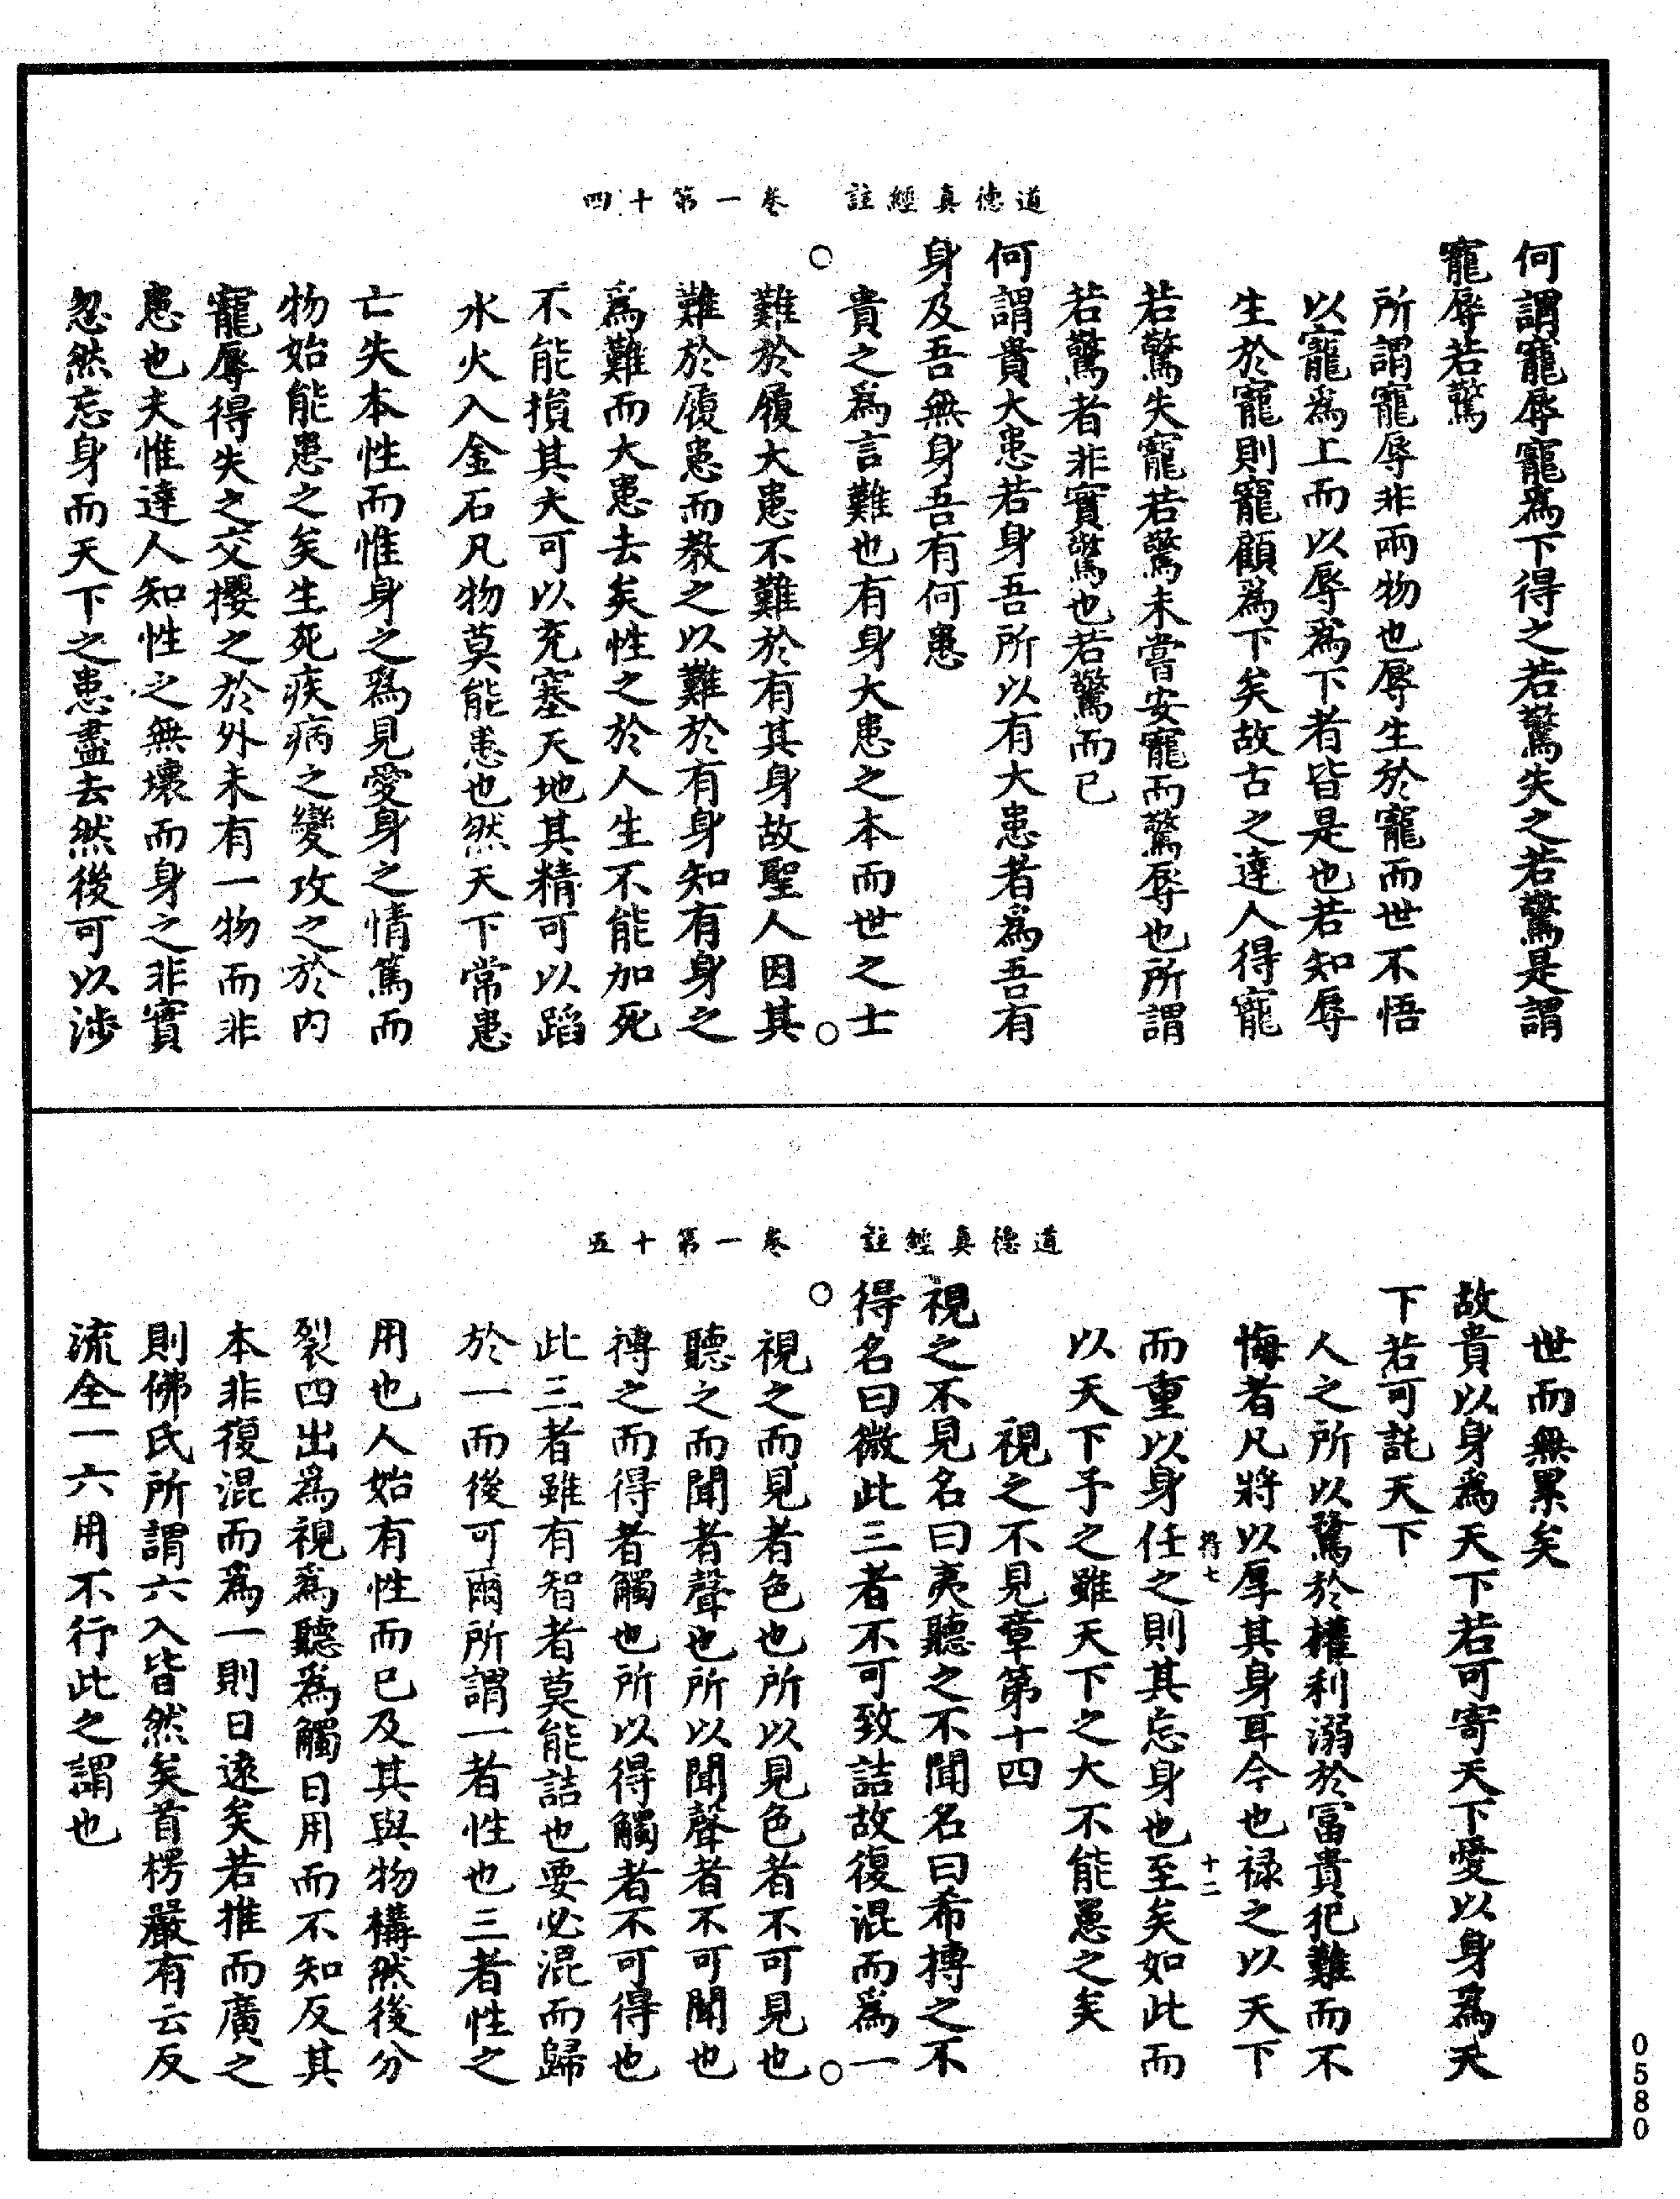 道德真經註　卷一第十四
何謂寵辱寵爲下得之若驚失之若驚是謂
寵辱若驚
所謂寵辱非兩物也辱生於寵而世不悟
以寵爲上而以辱爲下者皆是也若知辱
生於寵則寵顧爲下矣故古之達人得寵
若驚失寵若驚未嘗安寵而驚辱也所謂
若驚者非實驚也若驚而已
何謂貴大患若身吾所以有大患者爲吾有
身及吾無身吾有何患
貴之爲言難也有身大患之本而世之士
難於履大患不難於有其身故聖人因其
難於履患而教之以難於有身知有身之
爲難而大患去矣性之於人生不能加死
不能損其大可以充塞天地其精可以蹈
水火入金石凡物莫能患也然天下常患
亡失本性而惟身之爲見愛身之情篤而
物始能患之矣生死疾病之變攻之於內
寵辱得失之交攖之於外未有一物而非
患也夫惟達人知性之無壞而身之非實
忽然忘身而天下之患盡去然後可以涉
道德真經註　卷一第十五
世而無累矣
故貴以身爲天下若可寄天下愛以身爲天
下若可託天下
人之所以驚於權利溺於富貴犯難而不
悔者凡將以厚其身耳今也祿之以天下
符七　十二
而重以身任之則其忘身也至矣如此而
以天下予之雖天下之大不能患之矣
視之不見章第十四
視之不見名曰夷聽之不聞名曰希搏之不
得名曰微此三者不可致詰故復混而爲一
視之而見者色也所以見色者不可見也
聽之而聞者聲也所以聞聲者不可聞也
搏之而得者觸也所以得觸者不可得也
此三者雖有智者莫能詰也要必混而歸
於一而後可爾所謂一者性也三者性之
用也人始有性而已及其與物構然後分
裂四出爲視爲聽爲觸日用而不知反其
本非復混而爲一則日遠矣若推而廣之
則佛氏所謂六入皆然矣首楞嚴有云反
流全一六用不行此之謂也
0580